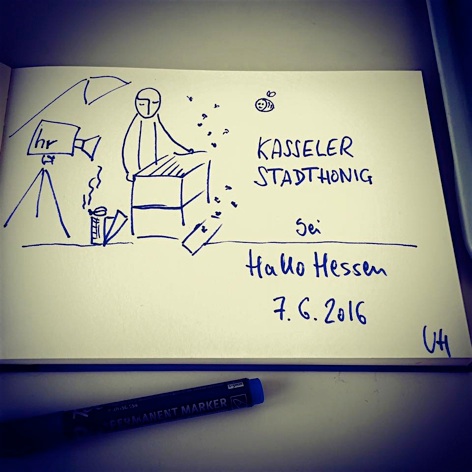 hr
KASSELER
STADTHONIG
bei
Hallo Hessen
7.6.2016
PERMANENT MARKER